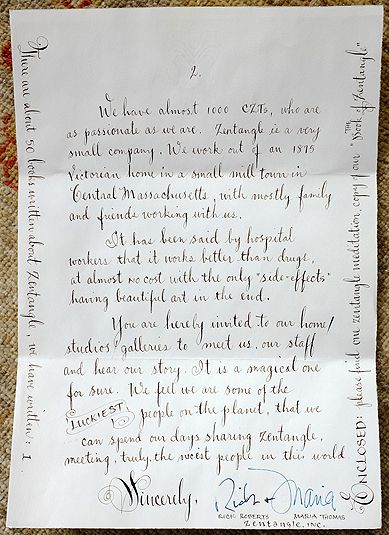 2.
We have almost 1000 CZTs, who are
as passionate as we are. Zentangle is a very
small company. We work out of an 1895
Victorian home in a small mill town in
Central Massachusetts, with mostly family
and friends working with us.
It has been said by hospital
workers that it works better than drugs,
at almost no cost with the only "side-effects"
having beautiful art in the end.
You are hereby invited to our home/
studios/galleries to meet us, our staff
and hear our story. It is a magical one
for sure. We feel we are some of the
LUCKIEST people on the planet, that we
can spend our days sharing Zentangle,
meeting, truly, the nicest people in this world
Sincerely,
Rick & Maria
RICK ROBERTS MARIA THOMAS
Zentangle, INC.
There are about 50 books written about Zentangle, we have written: 1.
ENCLOSED: please find one zentangle meditation, copy of our "THE Book of Zentangle"